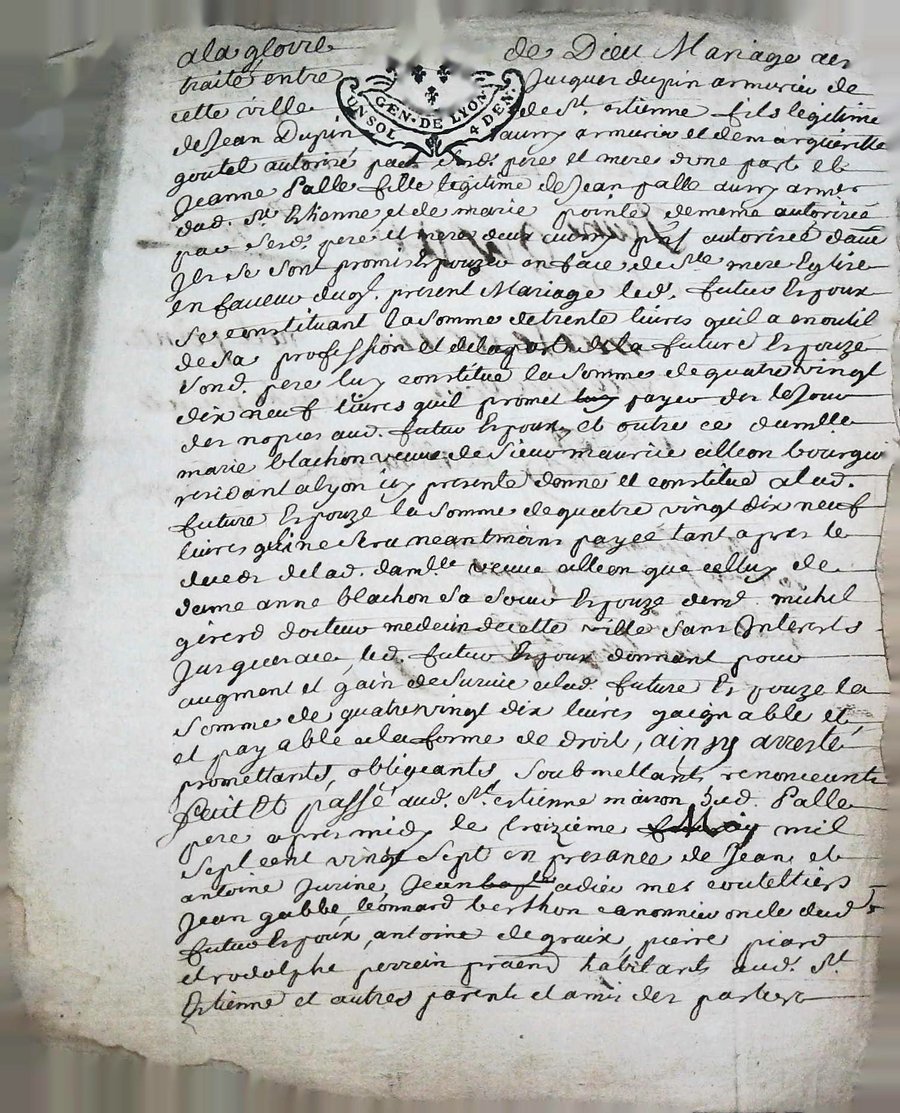 ala gloire de Dieu Mariage a esté
traité entre Jacques dupin armurier de
cette ville de St. estienne fils legitime
GEN. DE LYON
UN SOL 4 DEN.
de Jean Dupin aussy armurier et de margueritte
goutel autorizé par sesd. pere et mere d'une part et
Jeanne Palle fille legitime de Jean palle aussy armur
dud. St. Estienne et de marie pointe de meme autorizée
par sesd. pere et mere deux autorizée
Ils se sont promis Espouzer en face de Ste mere Eglize
en faveur duql. present Mariage led. futur Espoux
se constituant la somme de trente livres quil a en outil
de sa profession et de la part de la future Espouze
sond. pere luy constitue la somme de quatre vingt
dix neuf livres quil promet luy payer des le Jour
des nopces aud. futur Espoux, et outre ce damlle
marie blachon veuve de sieur maurice alleon bourgeo
residant a lyon icy presente donne et constitue a lad.
future Espouze la somme de quatre vingt dix neuf
livres qui ne sera neantmoins payée tant apres le
deces de lad. damlle veuve alleon que celluy de
dame anne blachon sa soeur Espouze de michel
girerd docteur medecin de cette ville sans Interests
Jusques a ce, led. futur Espoux donnant pour
augment et gain de survie a lad. future Espouze la
somme de quatre vingt dix livres gaignable et
et payable a la forme de droit, ainsy arresté
promettants, obligeants, soubmettants renonceants
fait et passé aud. St. estienne maison dud. Palle
pere apres midy le troizieme May mil
sept cent vingt sept en presance de Jean et
antoine Jurine, Jean adier mes couteltiers
Jean gabbé, léonnard berthon canonnier oncle dud
futur Espoux, antoine degraix, pierre piard
et rodolphe perrein habitants aud. St.
Estienne et autres parents et amis des parties